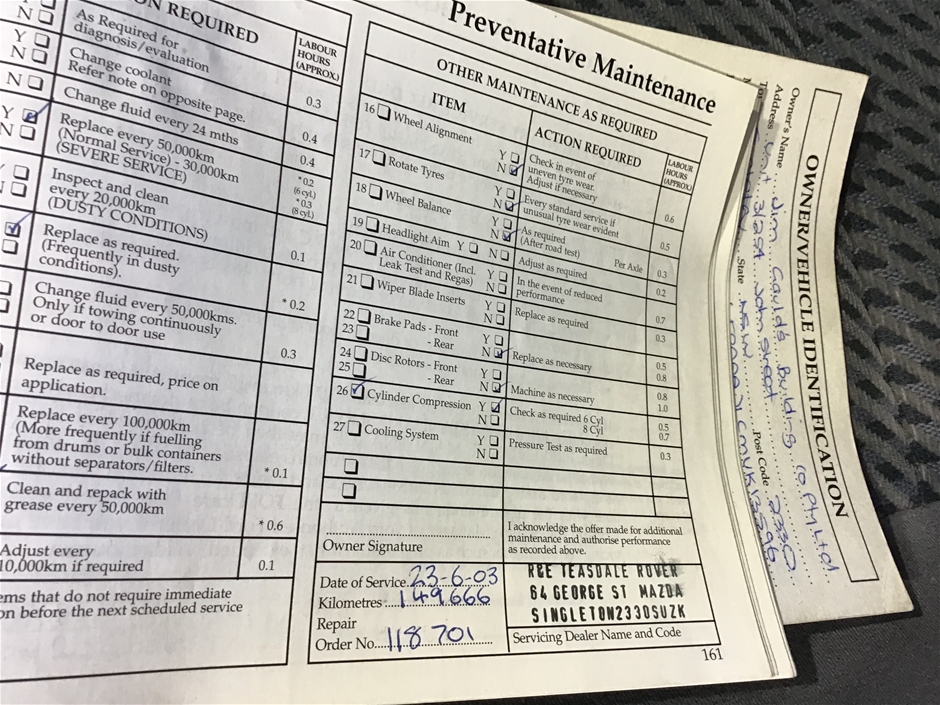 ON REQUIRED
LABOUR
HOURS
(APPROX)
N
As Required for
diagnosis/evaluation
0.3
Y
N
Change coolant
Refer note on opposite page.
0.4
N
Change fluid every 24 mths
0.4
Y
N
Replace every 50,000km
(Normal Service) - 30,000km
(SEVERE SERVICE)
*0.2
(6 cyl.)
*0.3
(8 cyl.)
Inspect and clean
every 20,000km
(DUSTY CONDITIONS)
0.1
Replace as required.
(Frequently in dusty
conditions).
*0.2
Change fluid every 50,000kms.
Only if towing continuously
or door to door use
0.3
Replace as required, price on
application.
Replace every 100,000km
(More frequently if fuelling
from drums or bulk containers
without separators/filters.
*0.1
Clean and repack with
grease every 50,000km
*0.6
Adjust every
10,000km if required
0.1
ems that do not require immediate
on before the next scheduled service
Preventative Maintenance
OTHER MAINTENANCE AS REQUIRED
ITEM
ACTION REQUIRED
LABOUR
HOURS
(APPROX)
16 Wheel Alignment Y N
Check in event of
uneven tyre wear.
Adjust if necessary
0.6
17 Rotate Tyres Y N
Every standard service if
unusual tyre wear evident
0.5
18 Wheel Balance Y N
As required
(After road test) Per Axle 0.3
19 Headlight Aim Y N Adjust as required 0.2
20 Air Conditioner (Incl.
Leak Test and Regas) Y N
In the event of reduced
performance
0.7
21 Wiper Blade Inserts Y N Replace as required 0.3
22 Brake Pads - Front Y 0.5
23 - Rear N Replace as necessary 0.8
24 Disc Rotors - Front Y 0.8
25 - Rear N Machine as necessary 1.0
26 Cylinder Compression Y N Check as required 6 Cyl 0.5
8 Cyl 0.7
27 Cooling System Y N Pressure Test as required 0.3
Owner Signature
I acknowledge the offer made for additional
maintenance and authorise performance
as recorded above.
Date of Service 23-6-03
Kilometres 149666
Repair
Order No. 118 701
RGE TEASDALE ROVER
64 GEORGE ST MAZDA
SINGLETON2330SUZK
Servicing Dealer Name and Code
161
OWNER/VEHICLE IDENTIFICATION
Owner's Name Jim Gaulds Building Co Pty Ltd
Address Unit 3/29A John Street
State NSW Post Code 2330